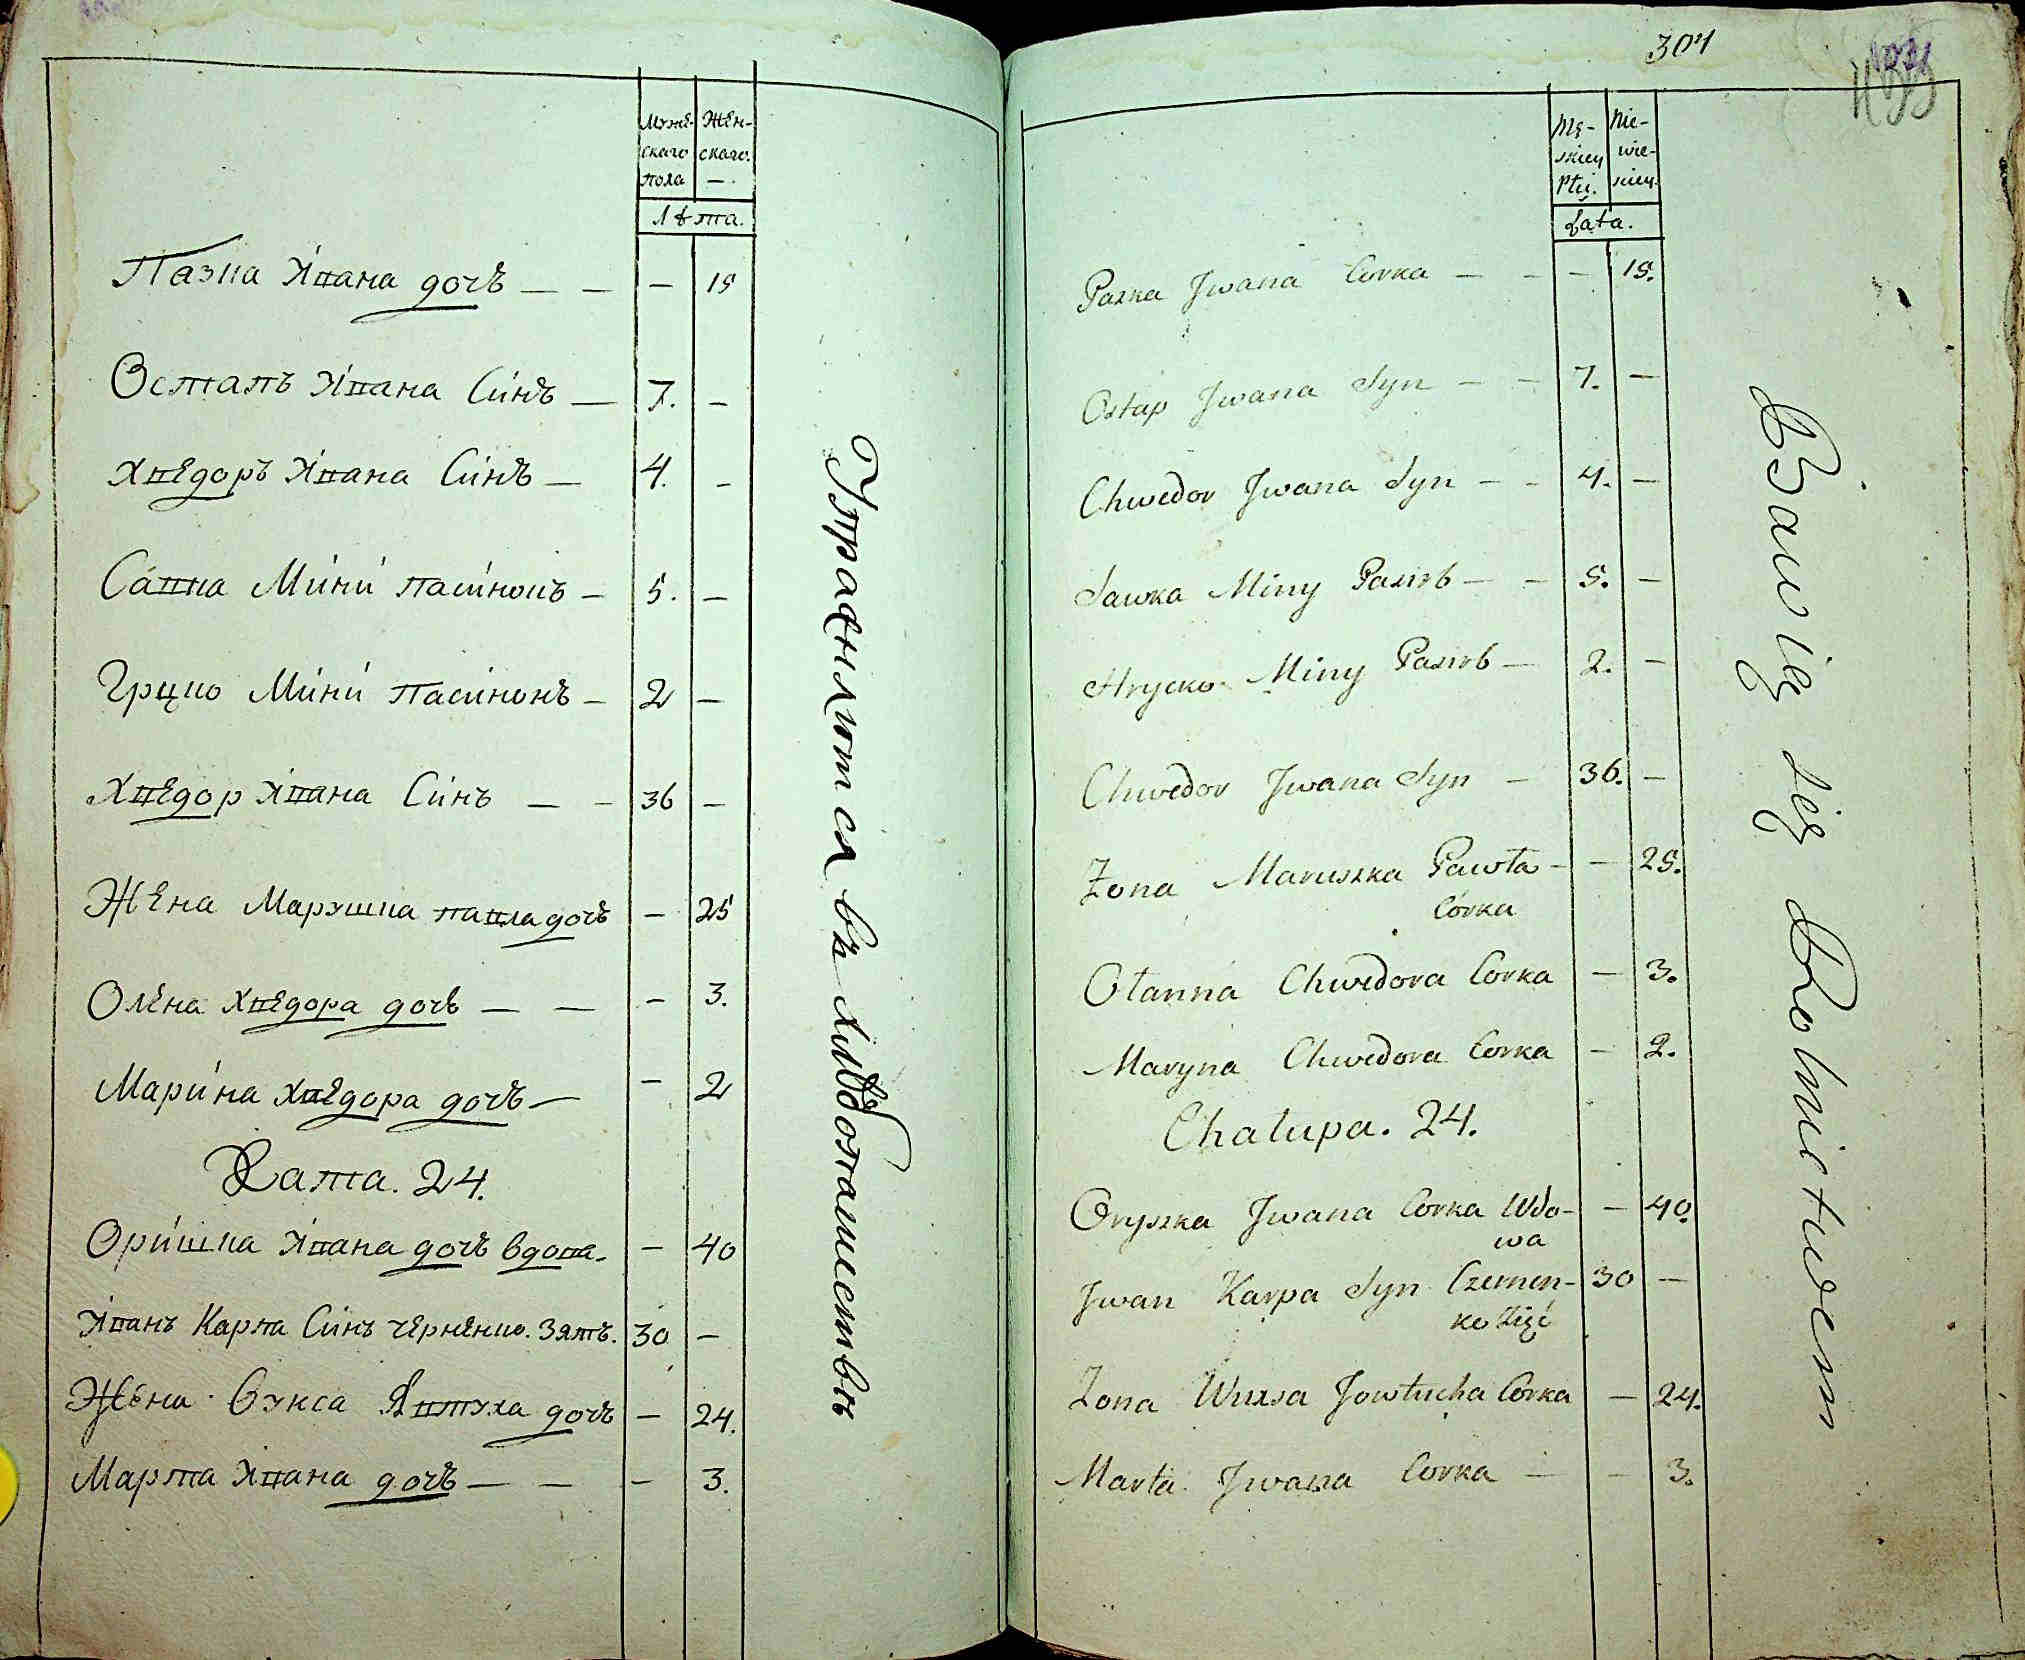 Муже- Жен-
скаго скаго.
пола —.
Лѣта.
Пазка Ивана дочь — — — 15
Остапъ Ивана Синъ — 7. —
Хведоръ Ивана Синъ — 4. —
Савка Мини пасинокъ — 5. —
Грицко Мини пасинокъ — 2 —
Хведор Ивана Синъ — — 36 —
Жена Марушка павла дочь — 25
Олена Хведора дочь — — — 3.
Марина Хведора дочь — — 2
Хата. 24.
Оришка Ивана дочь вдова. — 40
Иванъ Карпа Синъ черненко. Зять. 30 —
Жена Вукса Явтуха дочь — 24.
Марта Ивана дочь — — — 3.
Упраженяются въ хлѣбопашествѣ
304
Mę- Nie-
skiey wie-
Płci. skiey.
Łata.
Paska Jwana Corka — — — 15.
Ostap Jwana Syn — — 7. —
Chwedor Jwana Syn — — 4. —
Sawka Miny Pasirb — — 5. —
Hrycko Miny Pasirb — 2. —
Chwedor Jwana Syn — 36. —
Żona Maruszka Pawła — — 25.
Córka
Olanna Chwedora Corka — 3.
Maryna Chwedora Corka — 2.
Chalupa. 24.
Oryszka Jwana Corka Wdo- — 40.
wa
Jwan Karpa Syn Czernen- 30 —
ko Zięć
Żona Wuxsa Jowtucha Córka — 24.
Marta Jwana Corka — — 3.
Bawią się Rolnictwem